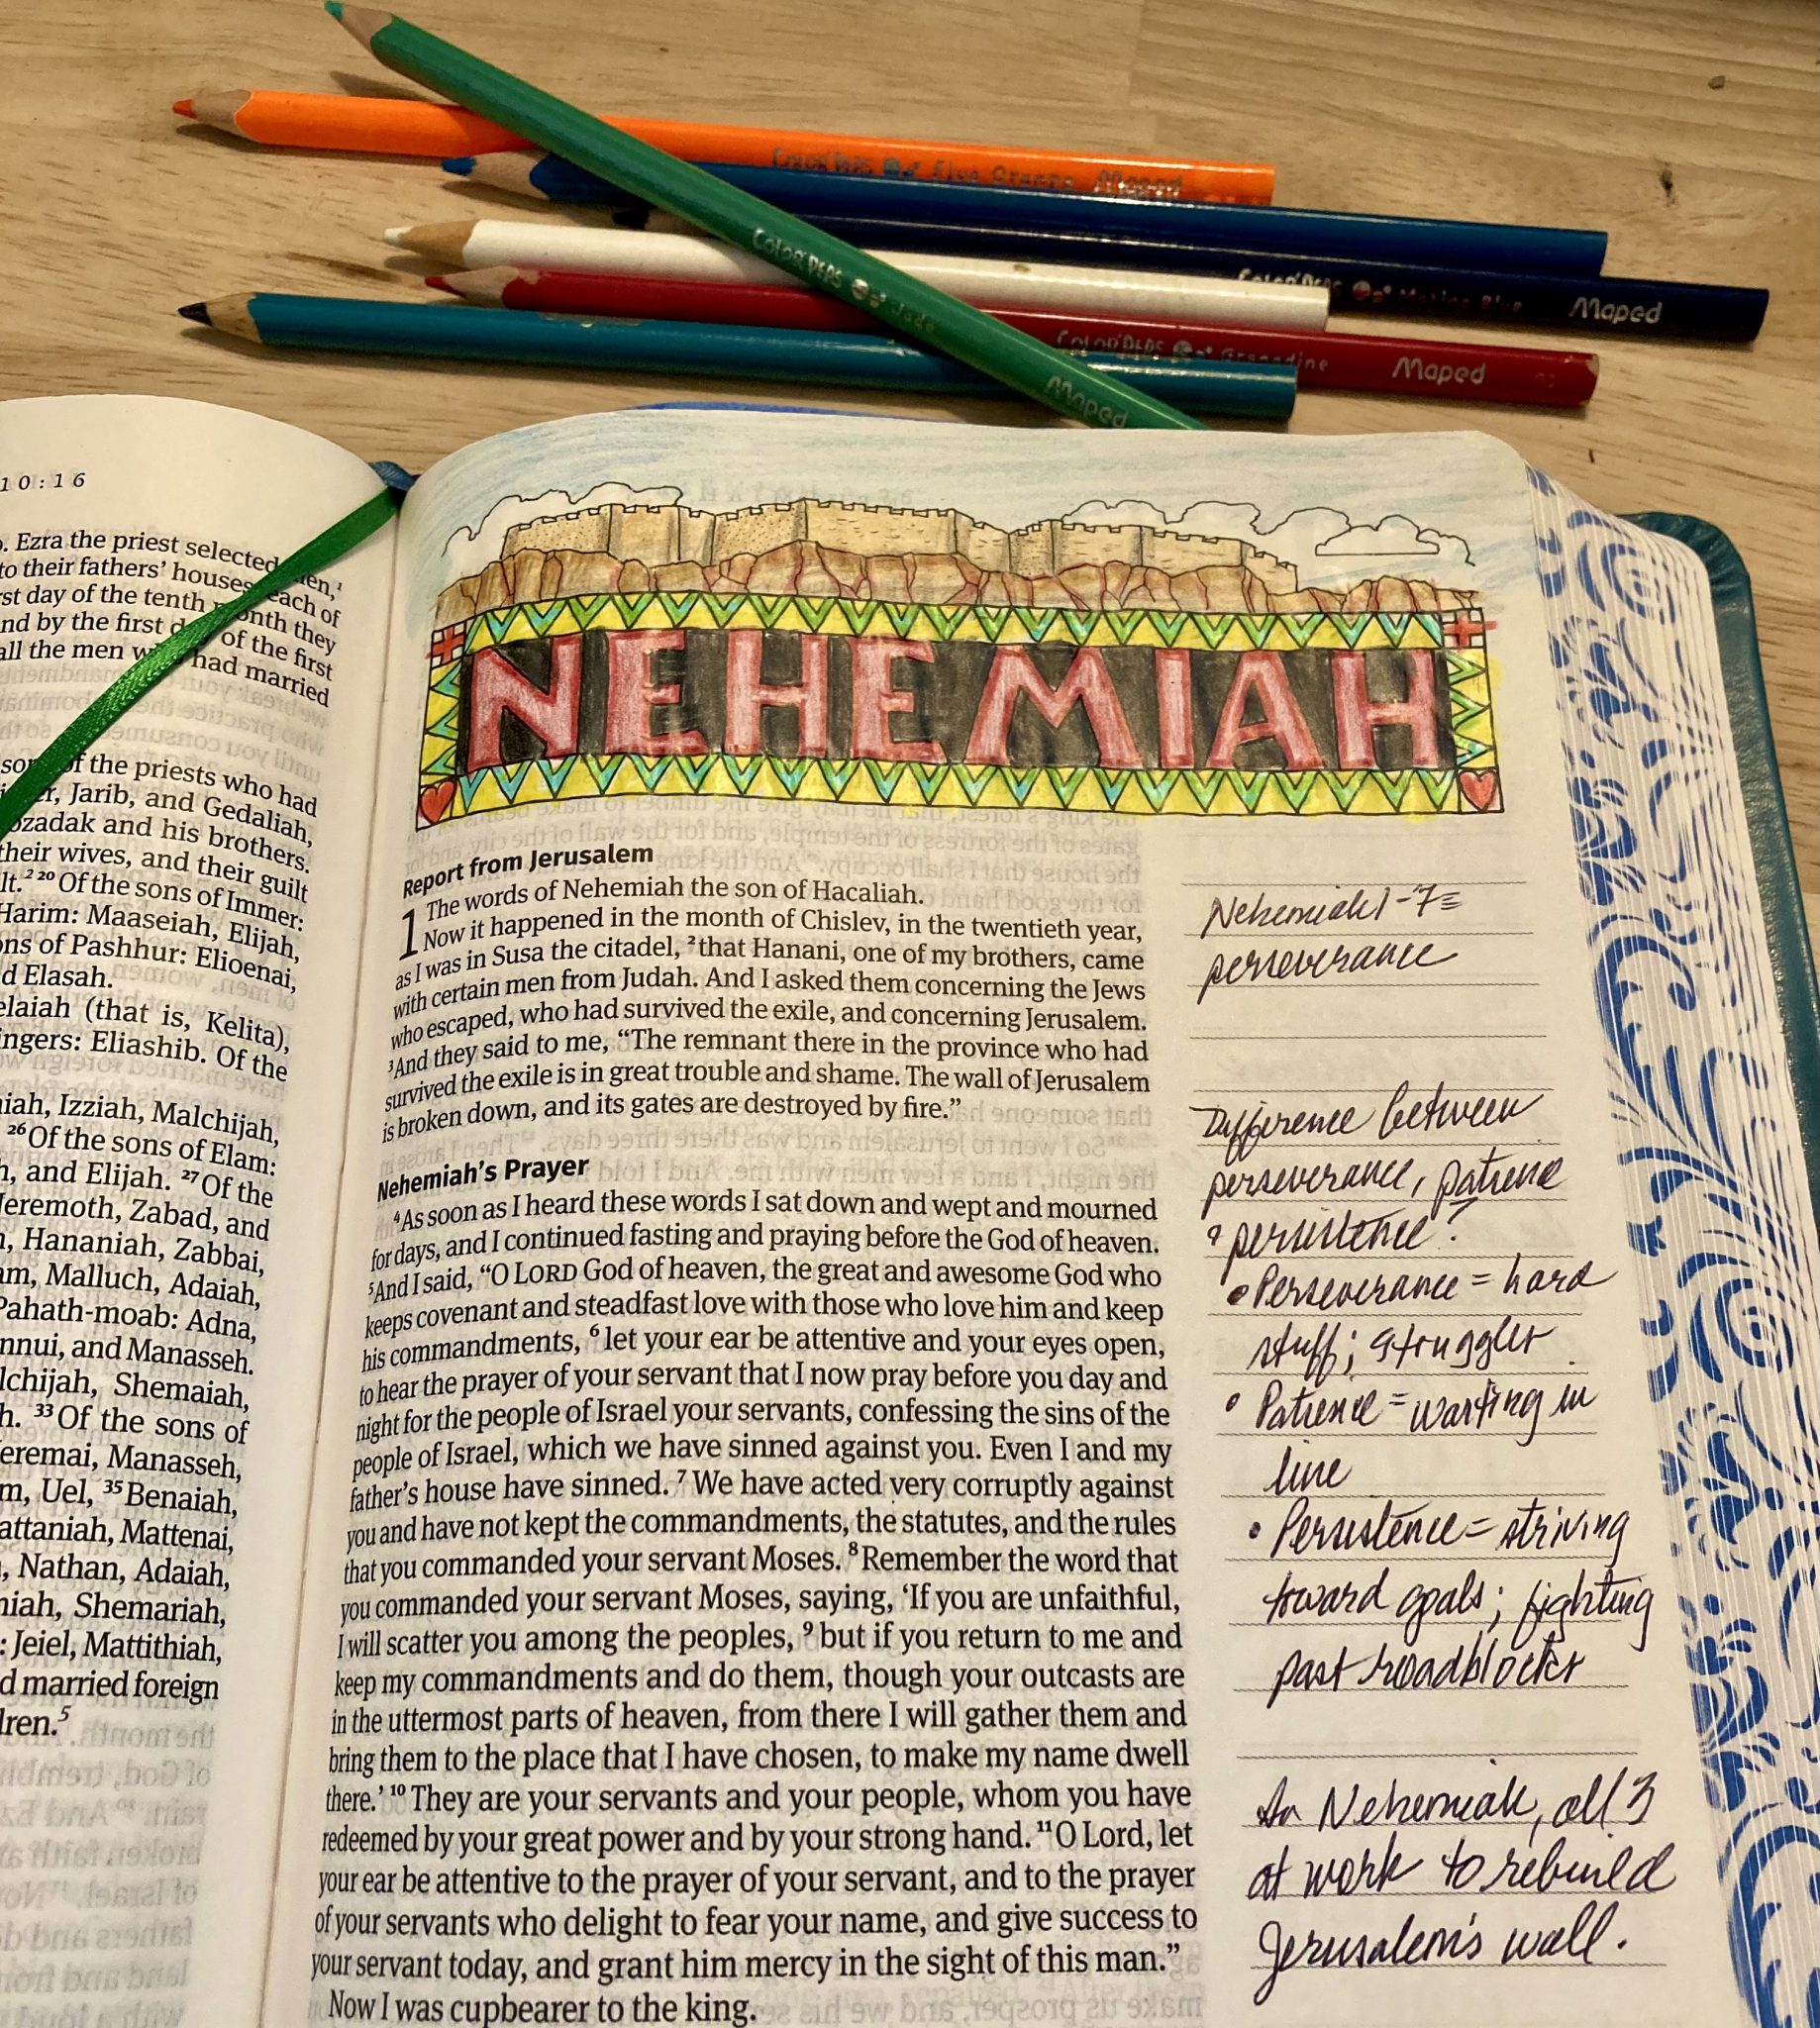 Color'Peps Maped
Color'Peps Marine Blue Maped
Color'Peps Jade Maped
Color'Peps Grenadine Maped
10:16
Ezra the priest selected men,¹
to their fathers' houses, each of
st day of the tenth month they
nd by the first day of the first
all the men who had married
of the priests who had
Jarib, and Gedaliah,
ozadak and his brothers.
their wives, and their guilt
lt.² ²⁰ Of the sons of Immer:
Harim: Maaseiah, Elijah,
ns of Pashhur: Elioenai,
d Elasah.
elaiah (that is, Kelita),
ingers: Eliashib. Of the
iah, Izziah, Malchijah,
²⁶ Of the sons of Elam:
h, and Elijah. ²⁷ Of the
Jeremoth, Zabad, and
, Hananiah, Zabbai,
am, Malluch, Adaiah,
Pahath-moab: Adna,
nnui, and Manasseh.
lchijah, Shemaiah,
h. ³³ Of the sons of
eremai, Manasseh,
m, Uel, ³⁵ Benaiah,
attaniah, Mattenai,
, Nathan, Adaiah,
niah, Shemariah,
: Jeiel, Mattithiah,
d married foreign
dren.⁵
NEHEMIAH
Report from Jerusalem
1 The words of Nehemiah the son of Hacaliah.
Now it happened in the month of Chislev, in the twentieth year,
as I was in Susa the citadel, ² that Hanani, one of my brothers, came
with certain men from Judah. And I asked them concerning the Jews
who escaped, who had survived the exile, and concerning Jerusalem.
³ And they said to me, “The remnant there in the province who had
survived the exile is in great trouble and shame. The wall of Jerusalem
is broken down, and its gates are destroyed by fire.”
Nehemiah's Prayer
⁴ As soon as I heard these words I sat down and wept and mourned
for days, and I continued fasting and praying before the God of heaven.
⁵ And I said, “O LORD God of heaven, the great and awesome God who
keeps covenant and steadfast love with those who love him and keep
his commandments, ⁶ let your ear be attentive and your eyes open,
to hear the prayer of your servant that I now pray before you day and
night for the people of Israel your servants, confessing the sins of the
people of Israel, which we have sinned against you. Even I and my
father's house have sinned. ⁷ We have acted very corruptly against
you and have not kept the commandments, the statutes, and the rules
that you commanded your servant Moses. ⁸ Remember the word that
you commanded your servant Moses, saying, ‘If you are unfaithful,
I will scatter you among the peoples, ⁹ but if you return to me and
keep my commandments and do them, though your outcasts are
in the uttermost parts of heaven, from there I will gather them and
bring them to the place that I have chosen, to make my name dwell
there.’ ¹⁰ They are your servants and your people, whom you have
redeemed by your great power and by your strong hand. ¹¹ O Lord, let
your ear be attentive to the prayer of your servant, and to the prayer
of your servants who delight to fear your name, and give success to
your servant today, and grant him mercy in the sight of this man.”
Now I was cupbearer to the king.
Nehemiah 1-7=
perseverance
Difference between
perseverance, patience
& persistence?
• Perseverance = hard
stuff; struggles
• Patience = waiting in
line
• Persistence = striving
toward goals; fighting
past roadblocks
In Nehemiah, all 3
at work to rebuild
Jerusalem's wall.